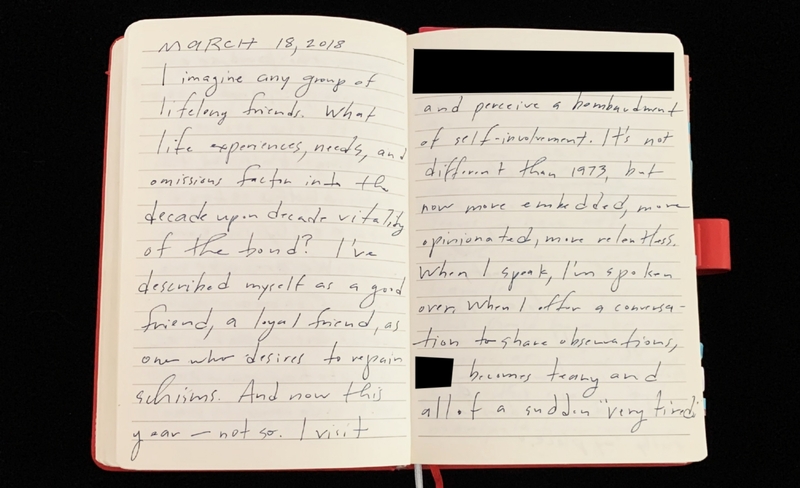 MARCH 18, 2018
I imagine any group of
lifelong friends. What
life experiences, needs, and
omissions factor into the
decade upon decade vitality
of the bond? I've
described myself as a good
friend, a loyal friend, as
one who desires to repair
schisms. And now this
year — not so. I visit
and perceive a bombardment
of self-involvement. It's not
different than 1973, but
now more embedded, more
opinionated, more relentless.
When I speak, I'm spoken
over. When I offer a conversa-
tion to share observations,
becomes teary and
all of a sudden "very tired."